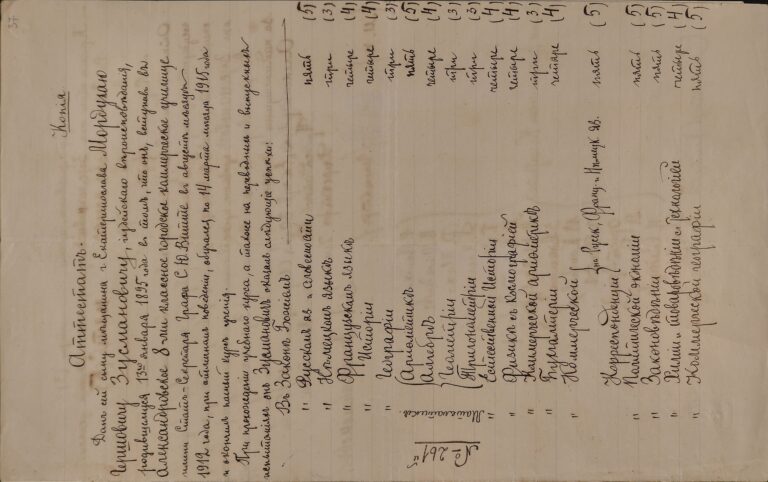 37.
Копія
Аттестатъ.
Данъ сей сыну мѣщанина г. Екатеринослава Мордухаю
Гершовичу Зусмановичу, іудейскаго вѣроисповѣданія,
родившемуся 13го января 1895 года въ томъ, что онъ, вступивъ въ
Александровское 8-ми классное городское коммерческое училище
имени Статсъ-Секретаря Графа С. Ю. Витте въ августѣ мѣсяцѣ
1912 года, при отличномъ поведеніи, обучался по 14 марта мѣсяца 1915 года
и окончилъ полный курсъ ученія.
При прохожденіи учебнаго курса, а также на переводныхъ и выпускныхъ
испытаніяхъ онъ Зусмановичъ оказалъ слѣдующіе успѣхи:
Въ Законѣ Божіемъ
" Русскомъ яз. и словесности пять (5)
" Нѣмецкомъ языкѣ три (3)
" Французскомъ языкѣ четыре (4)
" Исторіи четыре (4)
" Географіи три (3)
Математикѣ Ариѳметикѣ пять (5)
Алгебрѣ четыре (4)
Геометріи три (3)
Тригонометріи три (3)
" Естественной Исторіи четыре (4)
" Физикѣ съ Космографіей четыре (4)
" Коммерческой ариѳметикѣ три (3)
" Бухгалтеріи четыре (4)
" Коммерческой
Корреспонденціи на Русск., Франц. и Нѣмецк. яз. пять (5)
" Политической экономіи пять (5)
" Законовѣдѣніи пять (5)
" Химіи и товаровѣдѣніи съ Технологіей четыре (4)
" Коммерческой географіи пять (5)
№ 261й